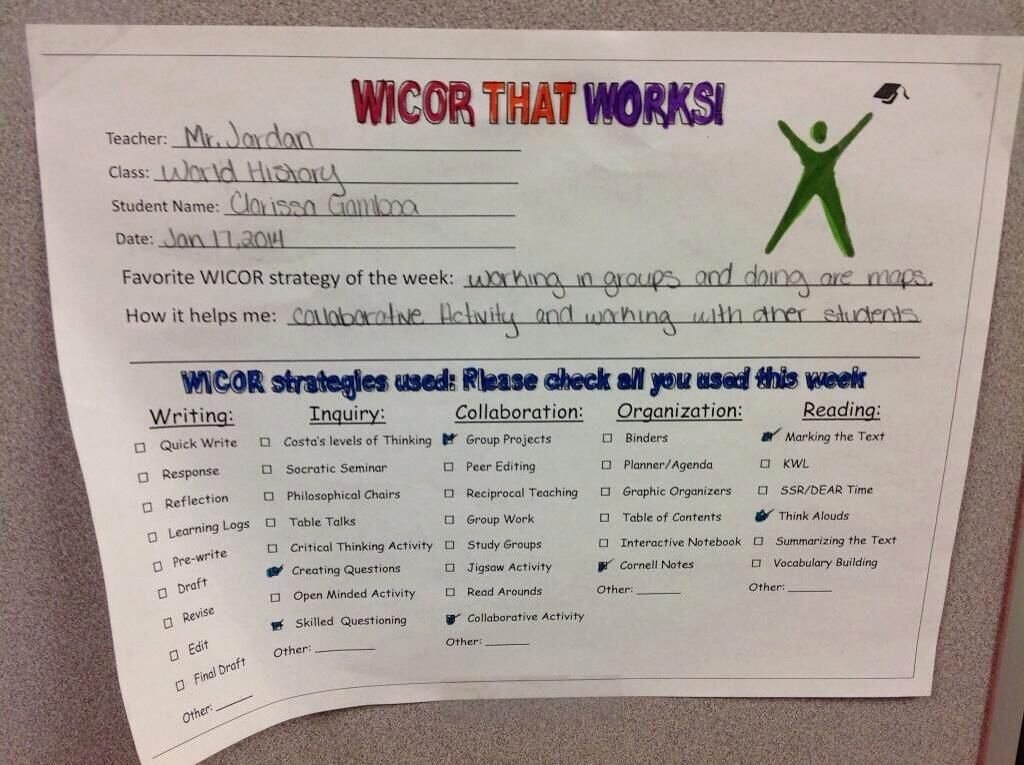 WICOR THAT WORKS!
Teacher: Mr. Jordan
Class: World History
Student Name: Clarissa Gamboa
Date: Jan 17, 2014
Favorite WICOR strategy of the week: working in groups and doing are maps.
How it helps me: Collaborative Activity and working with other students
WICOR strategies used: Please check all you used this week
Writing:
Quick Write
Response
Reflection
Learning Logs
Pre-write
Draft
Revise
Edit
Final Draft
Other:
Inquiry:
Costa's levels of Thinking
Socratic Seminar
Philosophical Chairs
Table Talks
Critical Thinking Activity
Creating Questions
Open Minded Activity
Skilled Questioning
Other:
Collaboration:
Group Projects
Peer Editing
Reciprocal Teaching
Group Work
Study Groups
Jigsaw Activity
Read Arounds
Collaborative Activity
Other:
Organization:
Binders
Planner/Agenda
Graphic Organizers
Table of Contents
Interactive Notebook
Cornell Notes
Other:
Reading:
Marking the Text
KWL
SSR/DEAR Time
Think Alouds
Summarizing the Text
Vocabulary Building
Other: